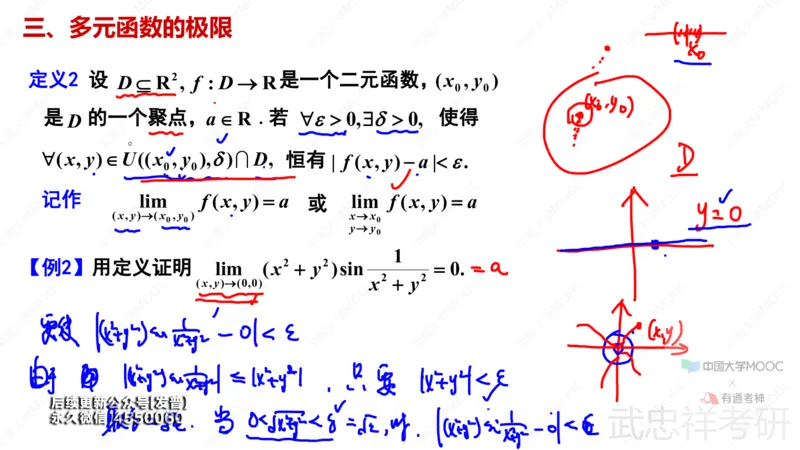 三、多元函数的极限
定义2 设 D ⊆ R², f : D → R 是一个二元函数，(x₀, y₀)
是 D 的一个聚点，a ∈ R . 若 ∀ε > 0, ∃δ > 0, 使得
∀(x, y) ∈ Ů((x₀, y₀), δ) ∩ D, 恒有 | f(x, y) − a |< ε.
记作 lim (x,y)→(x₀,y₀) f(x, y) = a 或 lim x→x₀ y→y₀ f(x, y) = a
【例2】用定义证明 lim (x,y)→(0,0) (x² + y²) sin 1/(x² + y²) = 0. = a
|(x²+y²) sin 1/(x²+y²) − 0| < ε
由于 |(x²+y²) sin 1/(x²+y²)| ≤ |x²+y²| , 只要 |x²+y²| < ε
当 0<√(x²+y²) < δ = √ε, 时. |(x²+y²) sin 1/(x²+y²) − 0| < ε
x₀
(x₀, y₀)
D
y = 0
(x,y)
中国大学MOOC
×
有道考神
武忠祥考研
后续更新公众号[发普]